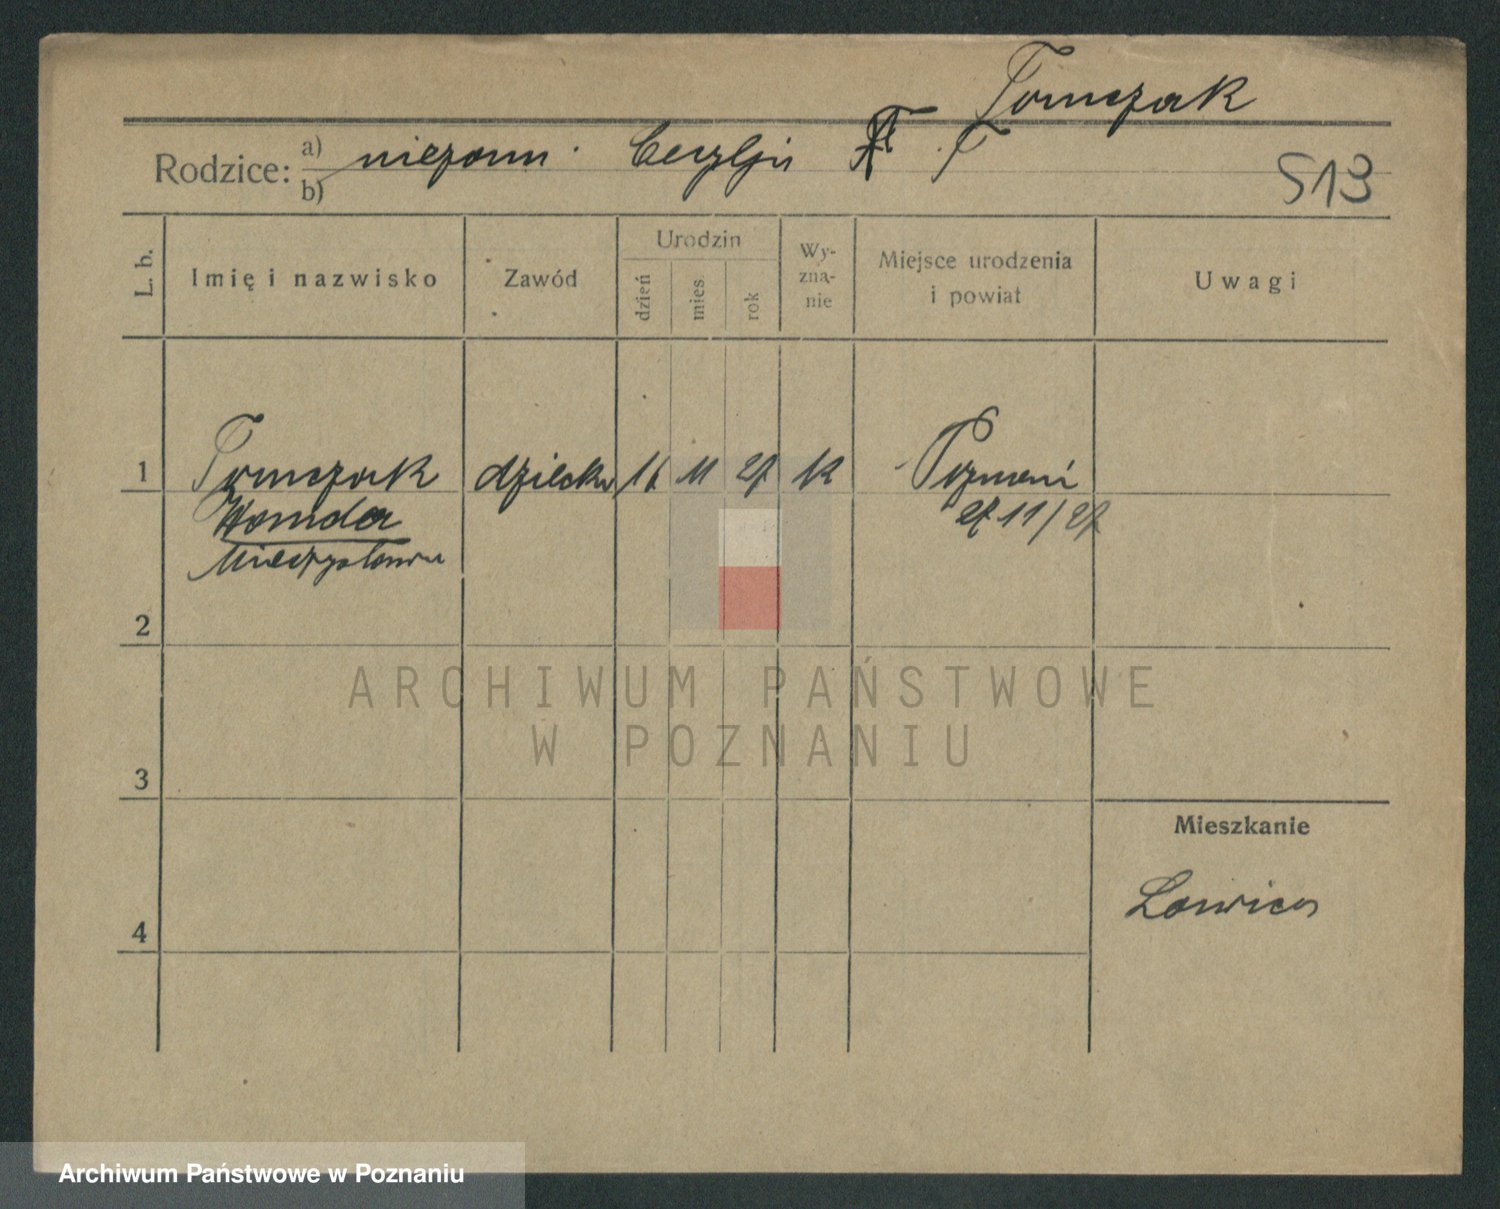 Tomczak
Rodzice: a) niezam. Cecylja T.
b)
513
L. b.
Imię i nazwisko
Zawód
Urodzin
dzień
mies.
rok
Wy-
zna-
nie
Miejsce urodzenia
i powiat
Uwagi
1
Tomczak
dziecko
16
11
27
k
Poznań
Wanda
27 11/27
Mieczysława
2
ARCHIWUM PAŃSTWOWE
W POZNANIU
3
Mieszkanie
4
Archiwum Państwowe w Poznaniu